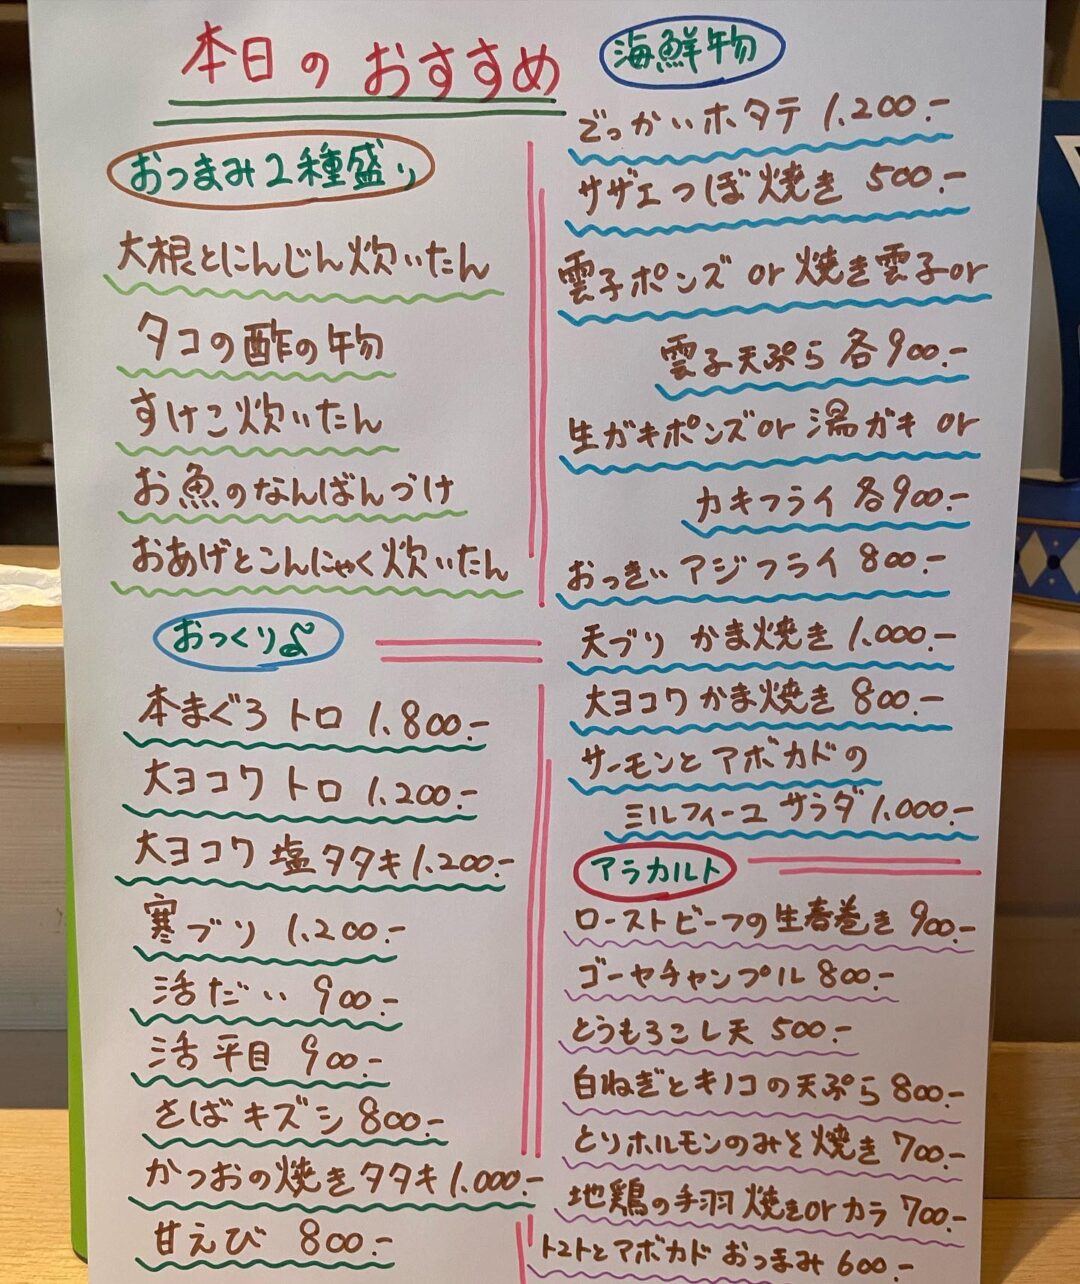 本日のおすすめ
おつまみ2種盛り
大根とにんじん炊いたん
タコの酢の物
すけこ炊いたん
お魚のなんばんづけ
おあげとこんにゃく炊いたん
おつくり
本まぐろ トロ 1.800.-
大ヨコワ トロ 1.200.-
大ヨコワ 塩タタキ 1.200.-
寒ブリ 1.200.-
活だい 900.-
活平目 900.-
さばキズシ 800.-
かつおの焼きタタキ 1.000.-
甘えび 800.-
海鮮物
でっかいホタテ 1.200.-
サザエつぼ焼き 500.-
雲子ポンズ or 焼き雲子or
雲子天ぷら 各900.-
生ガキポンズor 湯ガキ or
カキフライ 各900.-
おっきい アジフライ 800.-
天ブリ かま焼き 1.000.-
大ヨコワ かま焼き 800.-
サーモンとアボカドの
ミルフィーユ サラダ 1.000.-
アラカルト
ローストビーフの生春巻き 900.-
ゴーヤチャンプル 800.-
とうもろこし天 500.-
白ねぎとキノコの天ぷら 800.-
とりホルモンのみそ焼き 700.-
地鶏の手羽 焼きorカラ 700.-
トマトとアボカド おつまみ 600.-